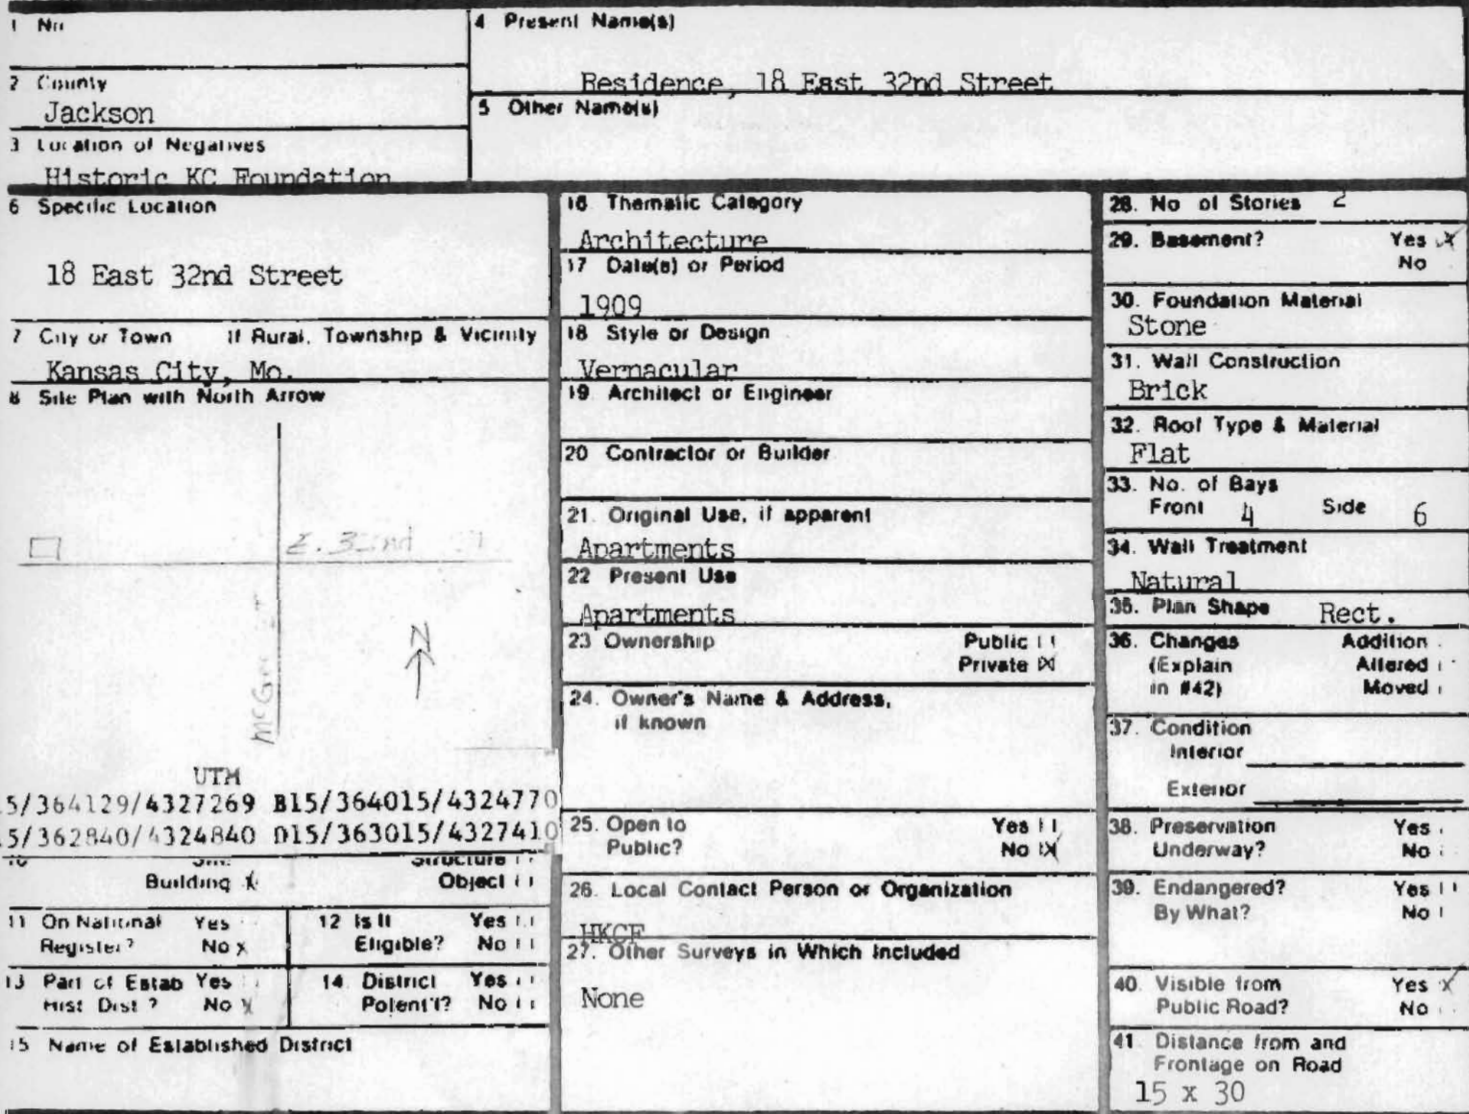 1 No
4 Present Name(s)
Residence, 18 East 32nd Street
2 County
Jackson
5 Other Name(s)
3 Location of Negatives
Historic KC Foundation
6 Specific Location
18 East 32nd Street
7 City or Town If Rural, Township & Vicinity
Kansas City, Mo.
8 Site Plan with North Arrow
E. 32nd
N
UTM
5/364129/4327269 B15/364015/4324770
5/362840/4324840 D15/363015/4327410
10 Structure
Building X Object
11 On National Register? Yes No X
12 Is It Eligible? Yes No
13 Part of Estab Hist Dist? Yes No X
14 District Potent'l? Yes No
15 Name of Established District
16 Thematic Category
Architecture
17 Date(s) or Period
1909
18 Style or Design
Vernacular
19. Architect or Engineer
20 Contractor or Builder
21. Original Use, if apparent
Apartments
22 Present Use
Apartments
23 Ownership Public
Private X
24. Owner's Name & Address,
if known
25. Open to Yes
Public? No X
26. Local Contact Person or Organization
HKCF
27. Other Surveys in Which Included
None
28. No of Stories 2
29. Basement? Yes X
No
30. Foundation Material
Stone
31. Wall Construction
Brick
32. Roof Type & Material
Flat
33. No. of Bays
Front 4 Side 6
34. Wall Treatment
Natural
35. Plan Shape Rect.
36. Changes Addition
(Explain Altered
in #42) Moved
37. Condition
Interior
Exterior
38. Preservation Yes
Underway? No
39. Endangered? Yes
By What? No
40. Visible from Yes X
Public Road? No
41. Distance from and
Frontage on Road
15 x 30